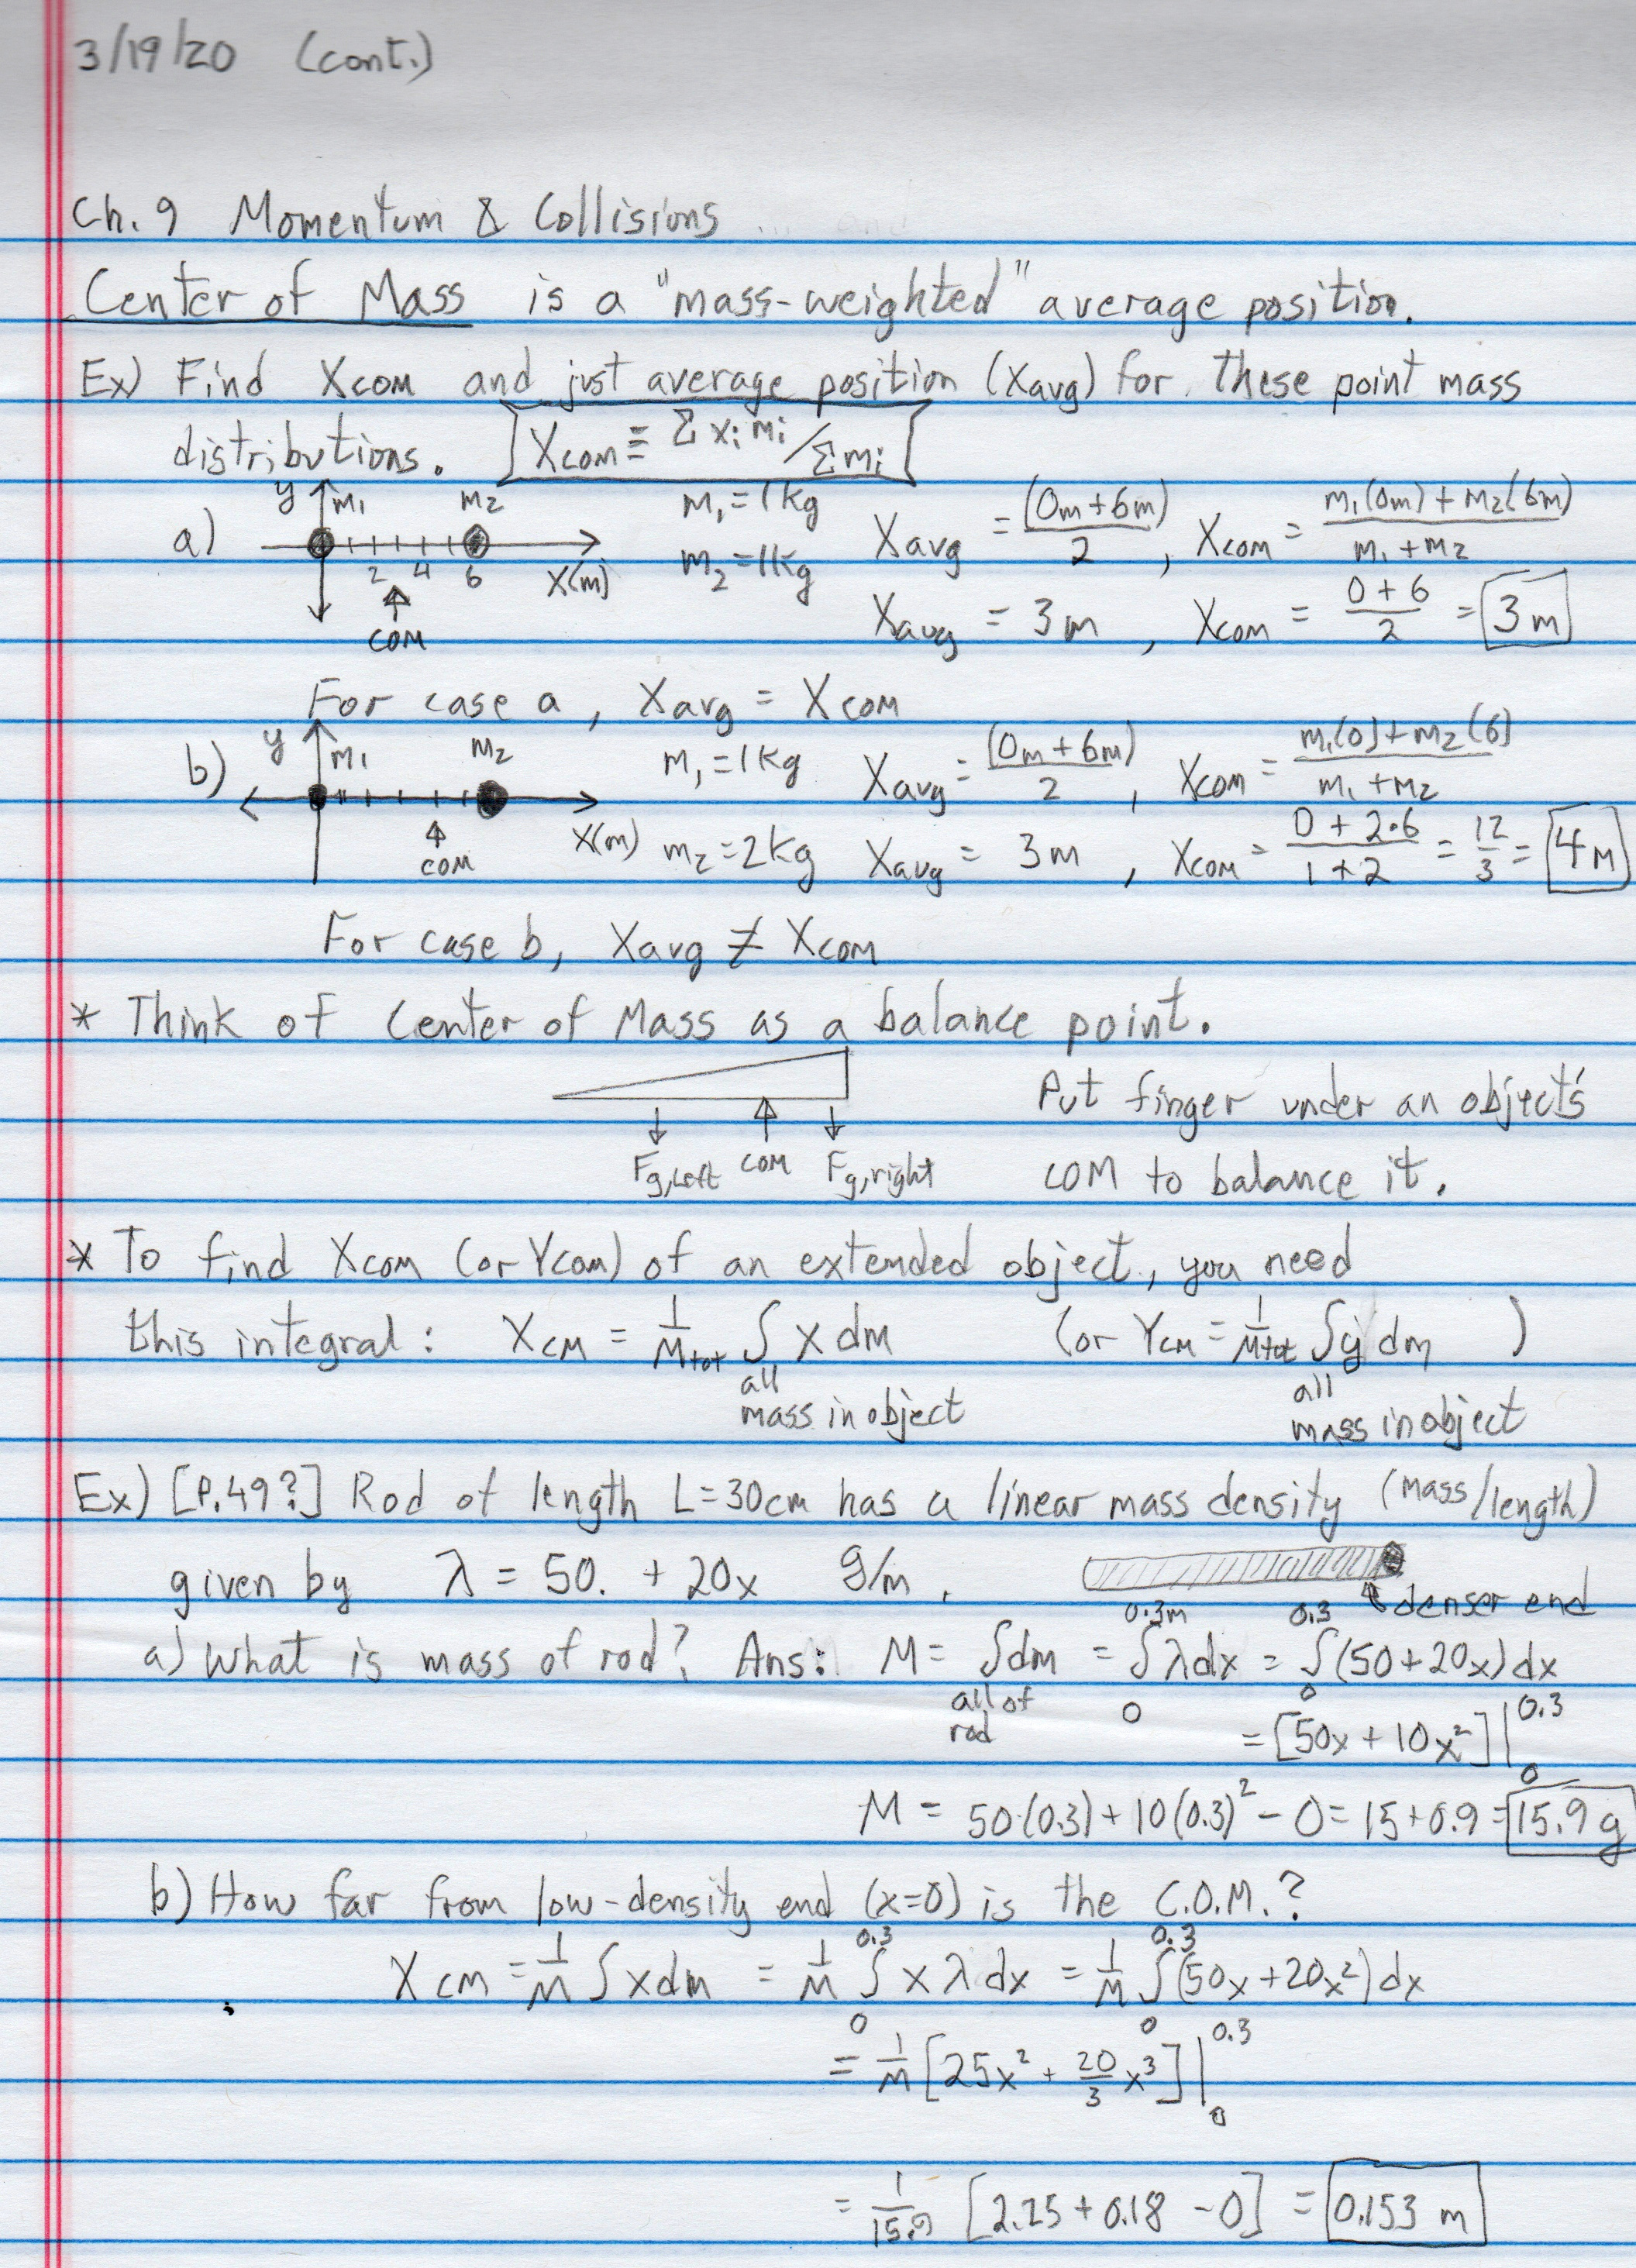 3/19/20 (cont.)
Ch. 9 Momentum & Collisions
Center of Mass is a "mass-weighted" average position.
Ex) Find Xcom and just average position (Xavg) for these point mass
distributions. Xcom ≡ Σ xi mi / Σ mi
a) y m1 m2 m1 = 1 kg Xavg = (0m + 6m)/2 , Xcom = m1(0m) + m2(6m) / m1 + m2
2 4 6 X(m) m2 = 1 kg
COM Xavg = 3 m , Xcom = 0 + 6 / 2 = 3 m
For case a, Xavg = Xcom
b) y m1 m2 m1 = 1 kg Xavg = (0m + 6m)/2 , Xcom = m1(0) + m2(6) / m1 + m2
COM X(m) m2 = 2 kg Xavg = 3 m , Xcom = 0 + 2·6 / 1 + 2 = 12/3 = 4 m
For case b, Xavg ≠ Xcom
* Think of Center of Mass as a balance point.
Put finger under an object's
Fg,left COM Fg,right COM to balance it.
* To find Xcom (or Ycom) of an extended object, you need
this integral: Xcm = 1/Mtot ∫ x dm (or Ycm = 1/Mtot ∫ y dm )
all all
mass in object mass in object
Ex) [P.49?] Rod of length L=30cm has a linear mass density (mass/length)
given by λ = 50. + 20x g/m.
denser end
a) What is mass of rod? Ans: M = ∫ dm = ∫ λ dx = ∫ (50 + 20x) dx
0.3m 0.3
all of 0 0
rod = [50x + 10x²] | 0.3 0
M = 50(0.3) + 10(0.3)² - 0 = 15 + 0.9 = 15.9 g
b) How far from low-density end (x=0) is the C.O.M.?
0.3 0.3
Xcm = 1/M ∫ x dm = 1/M ∫ x λ dx = 1/M ∫ (50x + 20x²) dx
0 0
= 1/M [25x² + 20/3 x³] | 0.3 0
= 1/15.9 [2.25 + 0.18 - 0] = 0.153 m